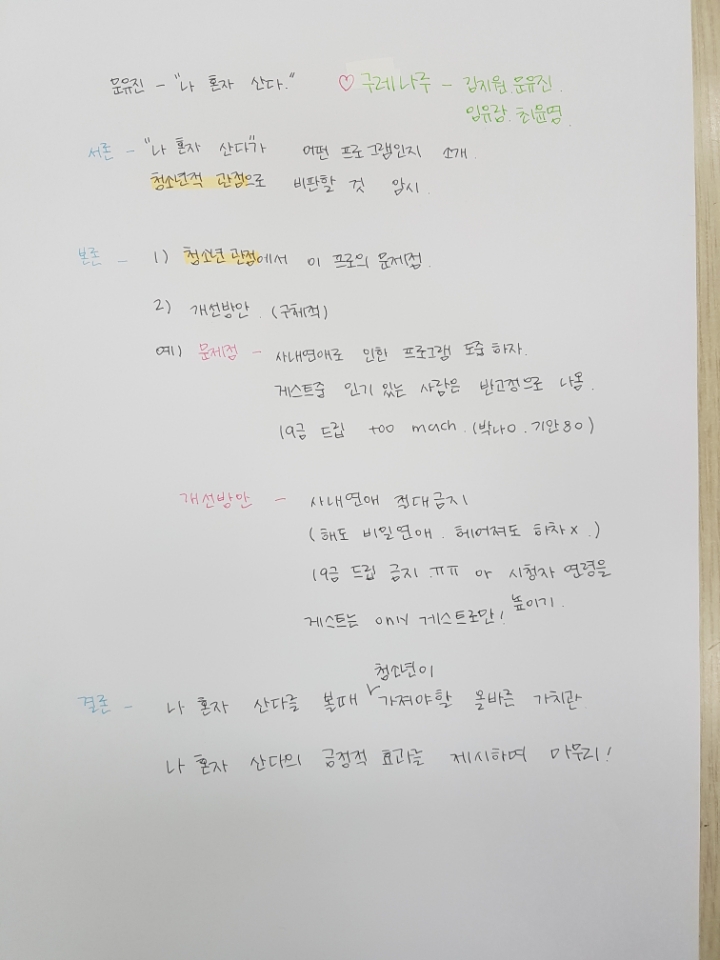 문유진 - "나 혼자 산다." ♡ 구레나루 - 김지원. 문유진.
임유람. 최윤영.
서론 - "나 혼자 산다"가 어떤 프로그램인지 소개.
청소년적 관점으로 비판할 것 암시.
본론 - 1) 청소년 관점에서 이 프로의 문제점.
2) 개선방안. (구체적)
예) 문제점 - 사내연애로 인한 프로그램 도중 하차.
게스트중 인기 있는 사람은 반고정으로 나옴.
19금 드립 too mach. (박나O. 기안80)
개선방안 - 사내연애 적대금지
(해도 비밀연애. 헤어져도 하차x.)
19금 드립 금지.ㅠㅠ 아 시청자 연령을
높이기.
게스트는 only 게스트로만!
결론 - 나 혼자 산다를 볼때 ∨청소년이 가져야할 올바른 가치관
나 혼자 산다의 긍정적 효과를 제시하며 마무리!